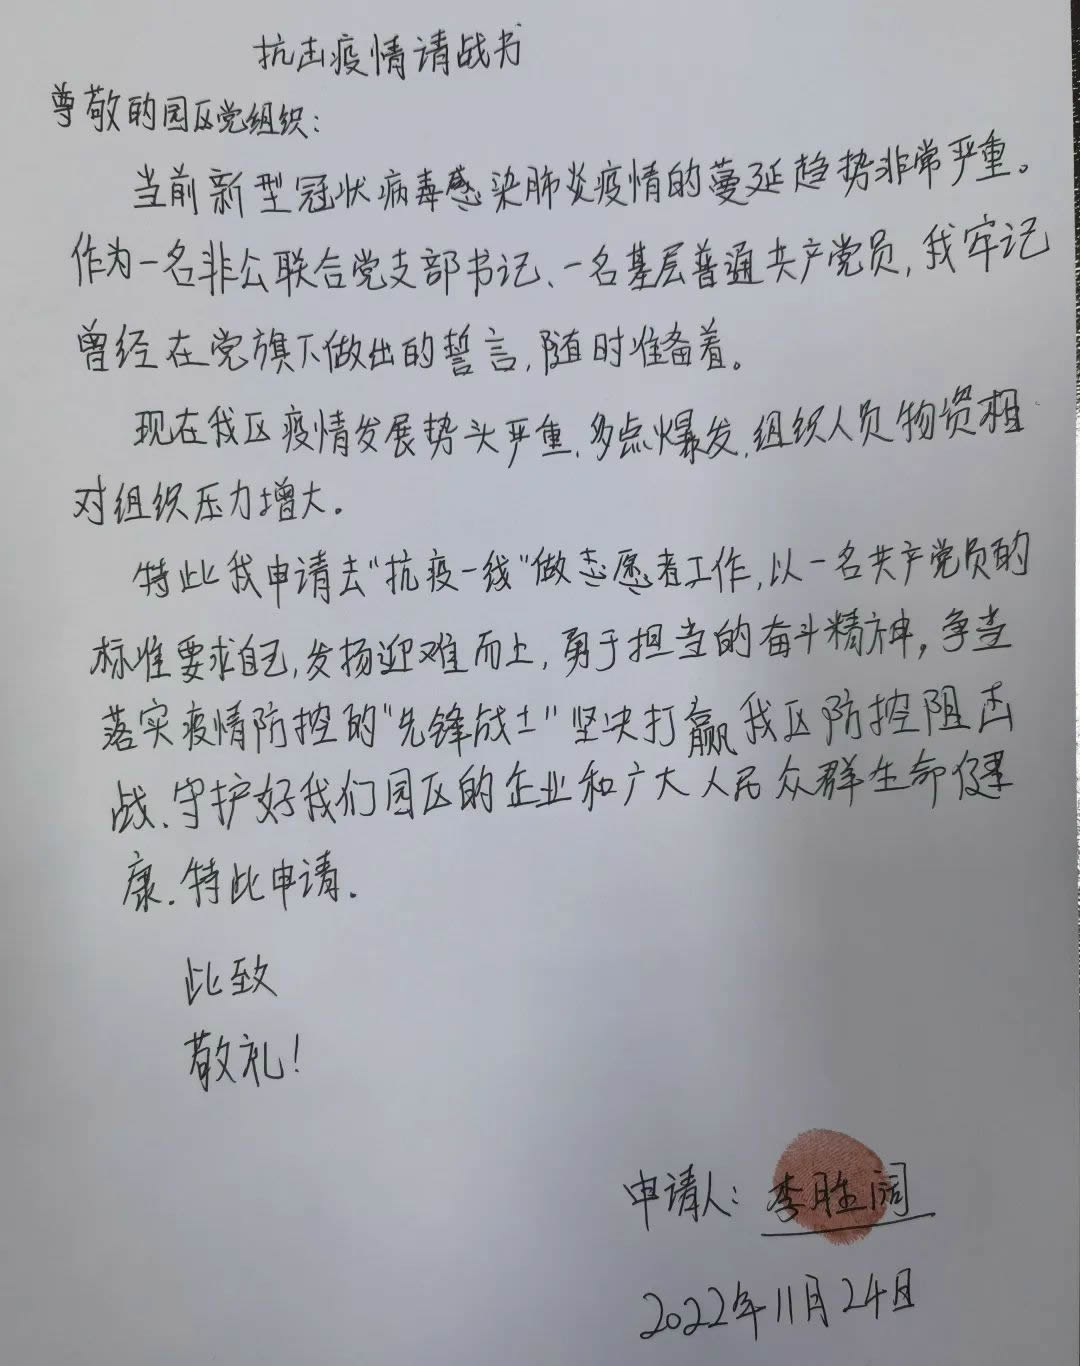 抗击疫情请战书
尊敬的园区党组织：
当前新型冠状病毒感染肺炎疫情的蔓延趋势非常严重。
作为一名非公联合党支部书记、一名基层普通共产党员，我牢记
曾经在党旗下做出的誓言，随时准备着。
现在我区疫情发展势头严重，多点爆发，组织人员物资相
对组织压力增大。
特此我申请去“抗疫一线”做志愿者工作，以一名共产党员的
标准要求自己，发扬迎难而上，勇于担当的奋斗精神，争当
落实疫情防控的“先锋战士”坚决打赢我区防控阻击
战、守护好我们园区的企业和广大人民众群生命健
康．特此申请．
此致
敬礼！
申请人：李胜阔
2022年11月24日